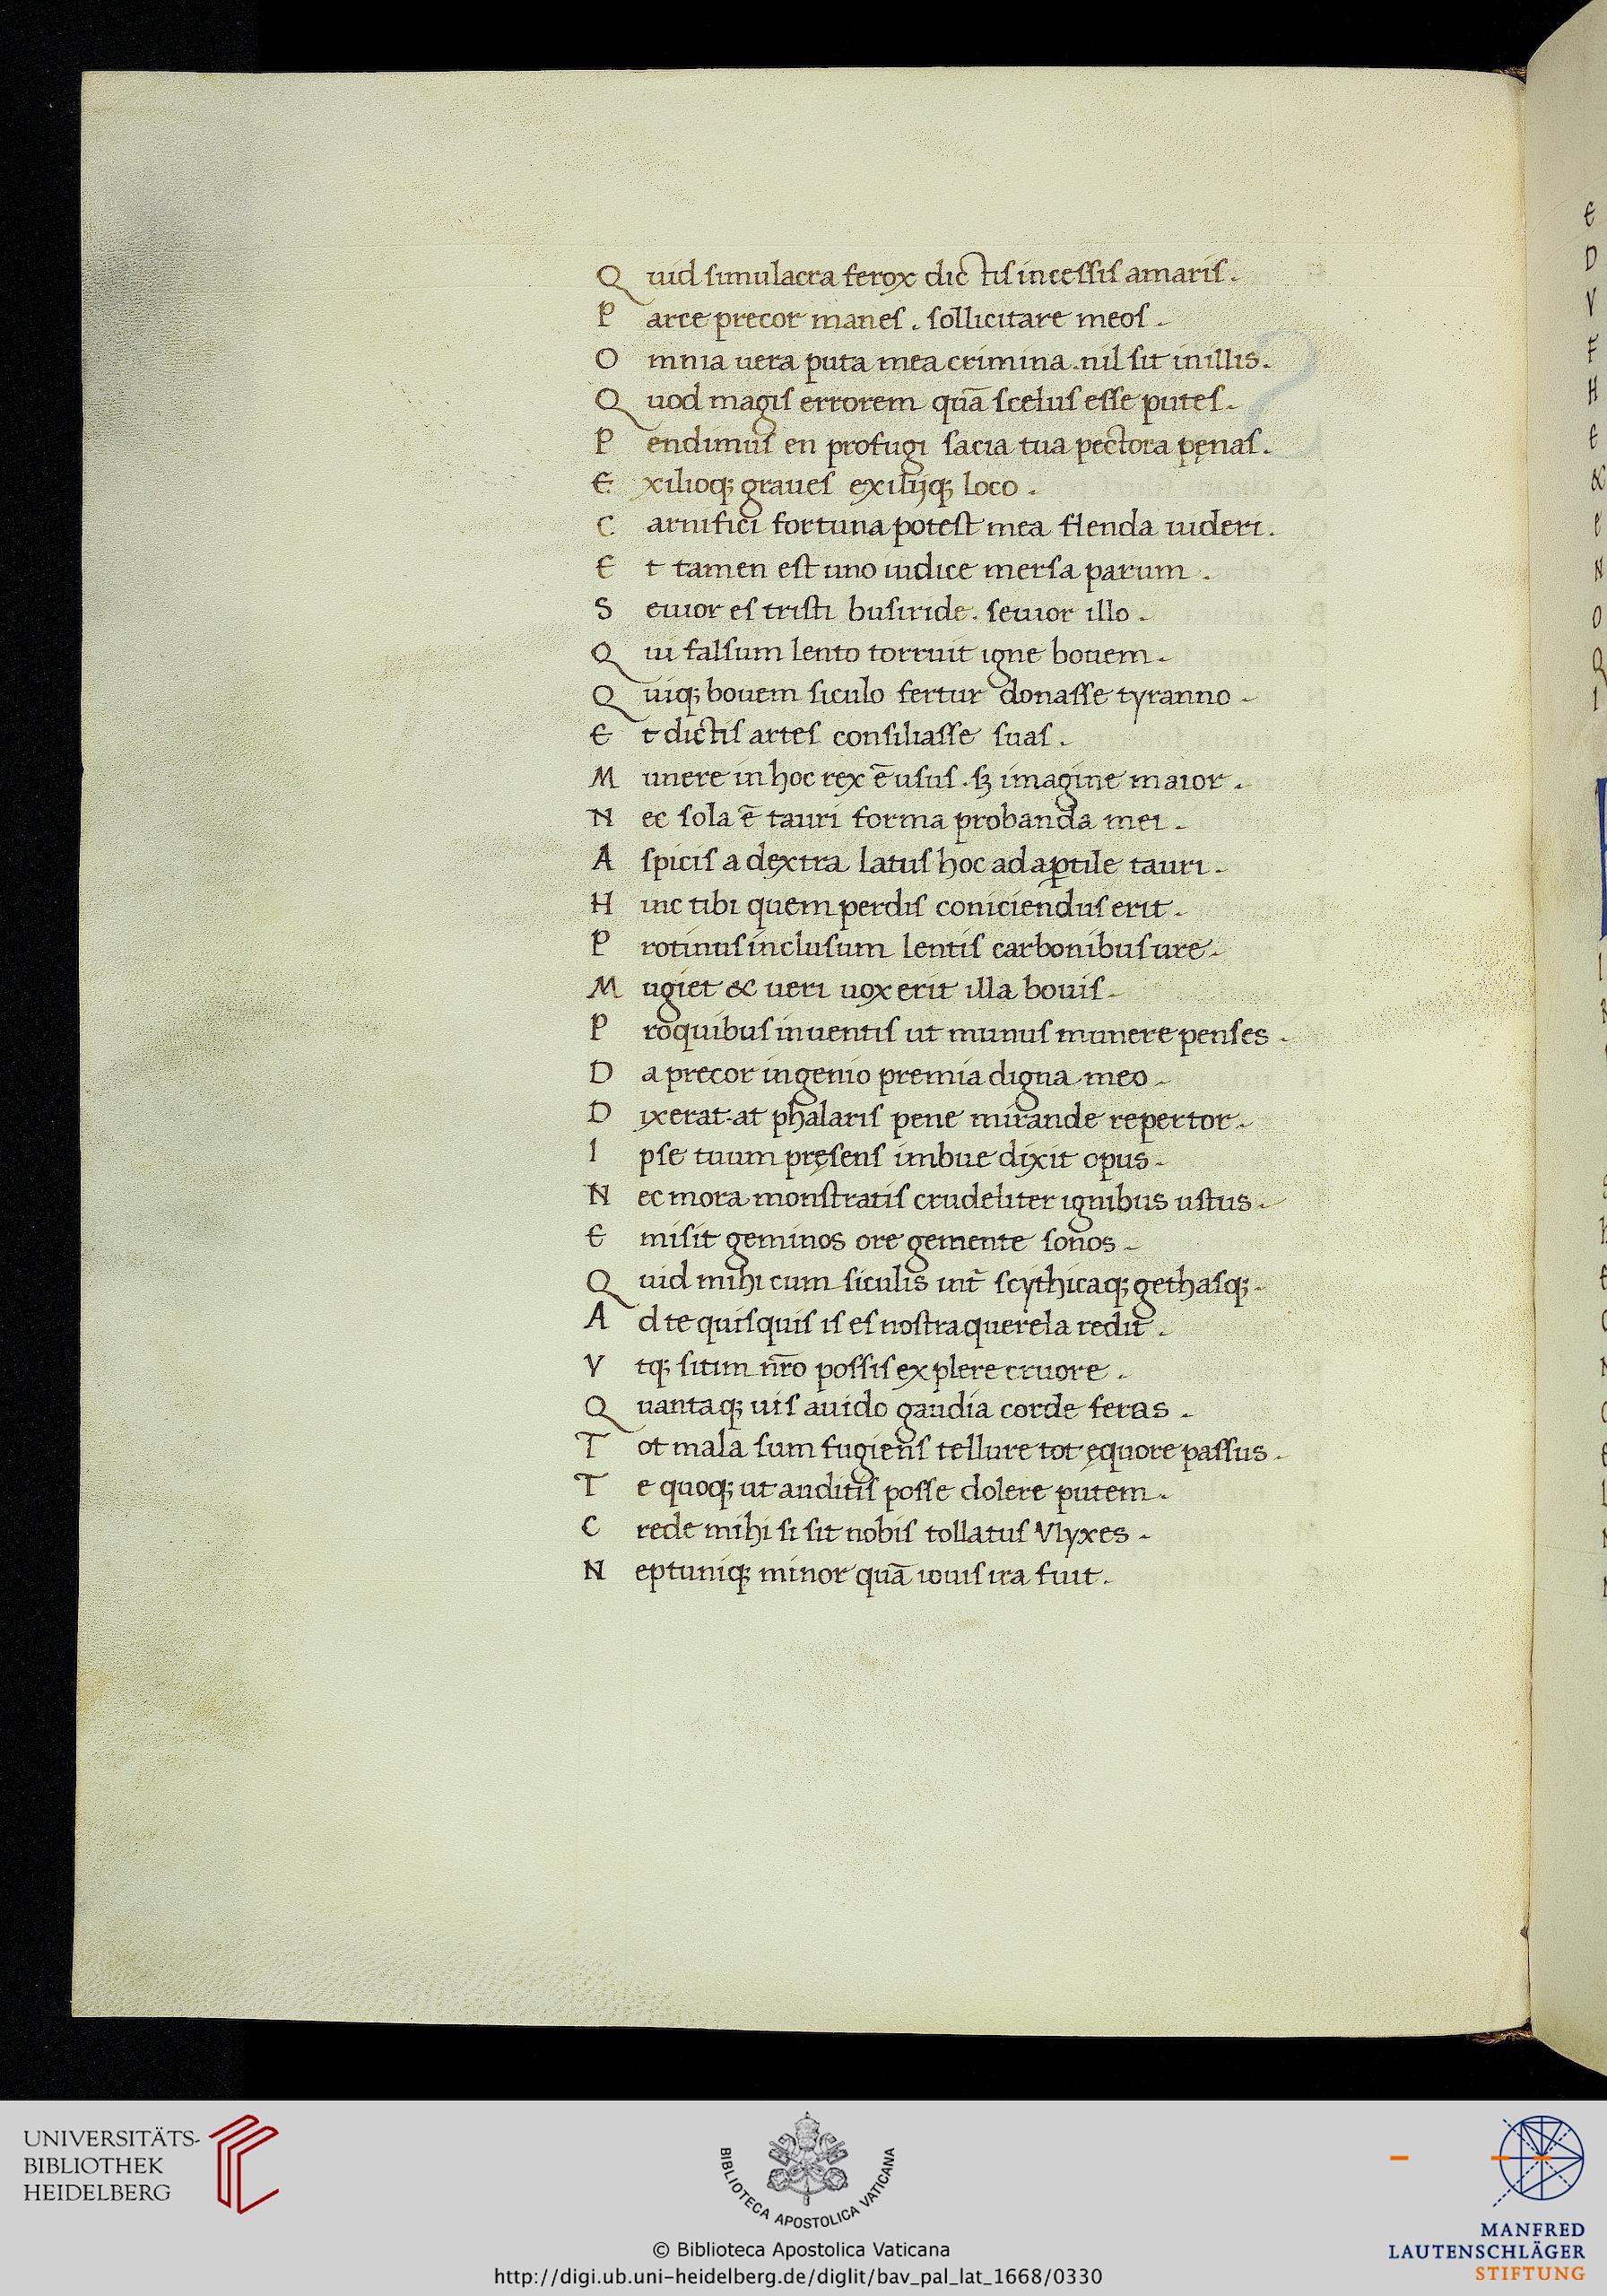 Quid simulacra ferox dictis incessis amaris.
Parce precor manes. sollicitare meos.
Omnia uera puta mea crimina. nil sit in illis.
Quod magis errorem quã scelus esse putes.
Pendimus en profugi sacia tua pectora pęnas.
Exilioq; graues exilijq; loco.
Carnifici fortuna potest mea flenda uideri.
Et tamen est uno iudice mersa parum.
Seuior es tristi busiride. seuior illo.
Qui falsum lento torruit igne bouem.
Quiq; bouem siculo fertur donasse tyranno.
Et dictis artes consiliasse suas.
Munere in hoc rex ē usus. sꝫ imagine maior.
Nec sola ē tauri forma probanda mei.
Aspicis a dextra latus hoc adaꝑtile tauri.
Hinc tibi quem perdis coniciendus erit.
Protinus inclusum lentis carbonibus ure.
Mugiet & ueri uox erit illa bouis.
Pro quibus inuentis ut munus munere penses.
Da precor ingenio premia digna meo.
Dixerat. at phalaris pene mirande repertor.
Ipse tuum pręsens imbue dixit opus.
Nec mora monstratis crudeliter ignibus ustus.
Emisit geminos ore gemente sonos.
Quid mihi cum siculis int̄ scythicaq; gethasq;.
Ad te quisquis is es nostra querela redit.
Vtq; sitim nr̄o possis explere cruore.
Quantaq; uis auido gaudia corde feras.
Tot mala sum fugiens tellure tot ęquore passus.
Te quoq; ut auditis posse dolere putem.
Crede mihi si sit nobis tollatus Vlyxes.
Neptuniq; minor quã iouis ira fuit.
UNIVERSITÄTS-
BIBLIOTHEK
HEIDELBERG
BIBLIOTECA APOSTOLICA VATICANA
© Biblioteca Apostolica Vaticana
http://digi.ub.uni-heidelberg.de/diglit/bav_pal_lat_1668/0330
MANFRED
LAUTENSCHLÄGER
STIFTUNG